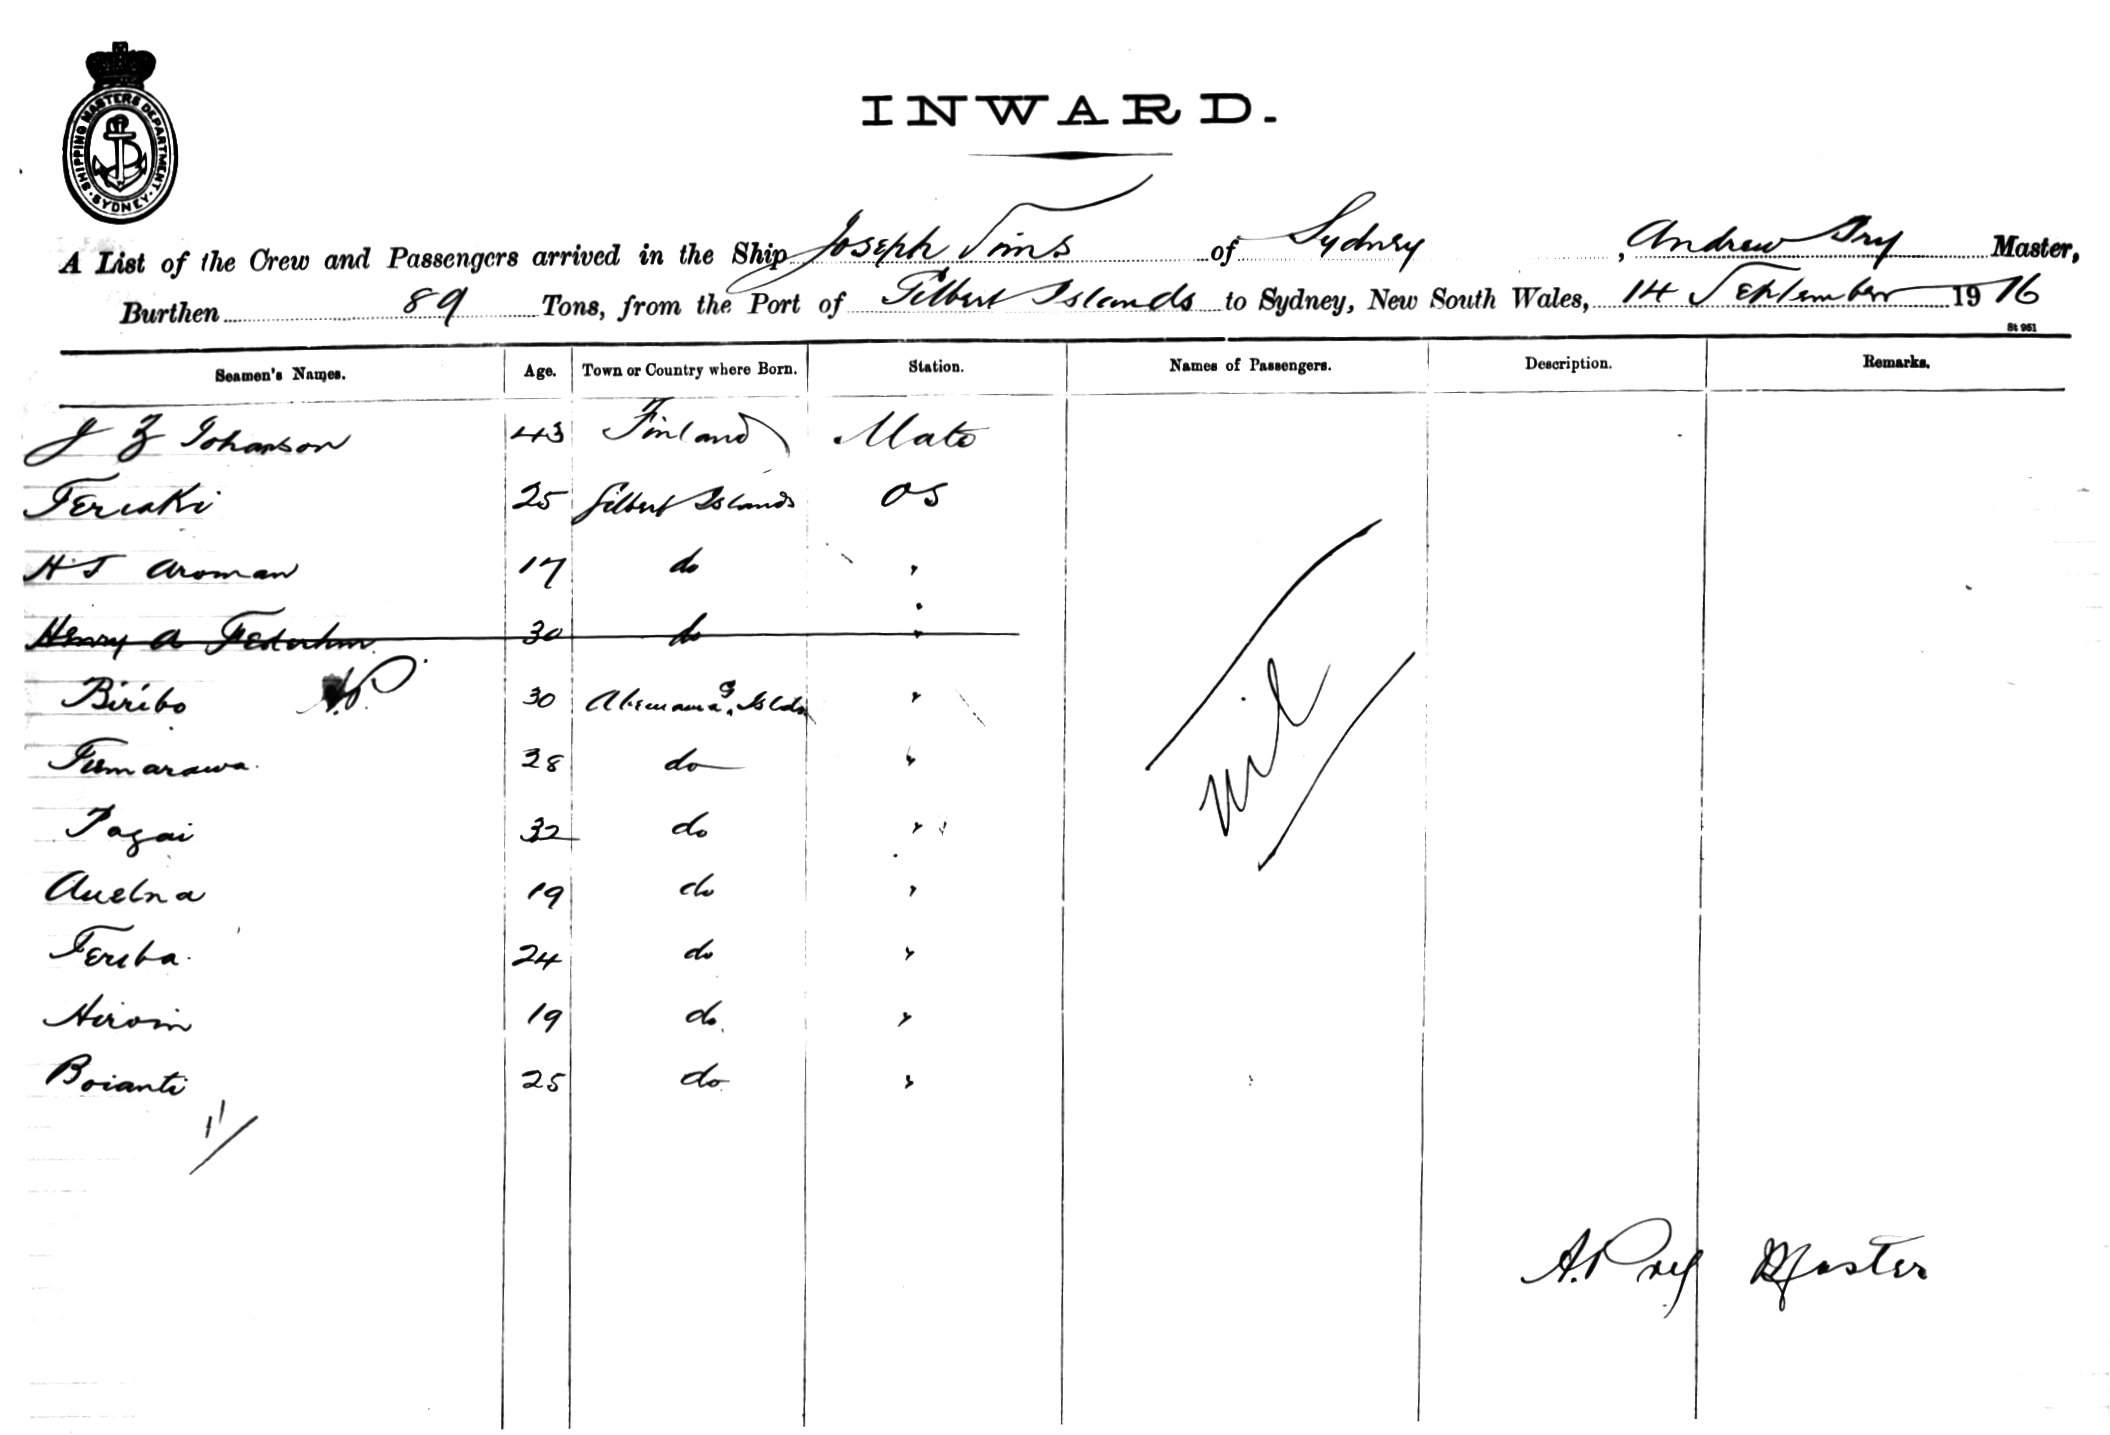 SHIPPING MASTERS DEPARTMENT
SYDNEY
INWARD.
A List of the Crew and Passengers arrived in the Ship Joseph Sims of Sydney, Andrew Master,
Burthen 89 Tons, from the Port of Gilbert Islands to Sydney, New South Wales, 14 September 1916
St 961
Seamen's Names. Age. Town or Country where Born. Station. Names of Passengers. Description. Remarks.
J Z Johanson 43 Finland Mate
Tereaki 25 Gilbert Islands OS
H J Aroman 17 do "
Henry A 30 do "
Biribo 30 Islds "
A.P.
Tumarawa 28 do "
Tagai 32 do "
nil
19 do "
Teriba 24 do "
19 do "
Boianti 25 do "
11
A. Master